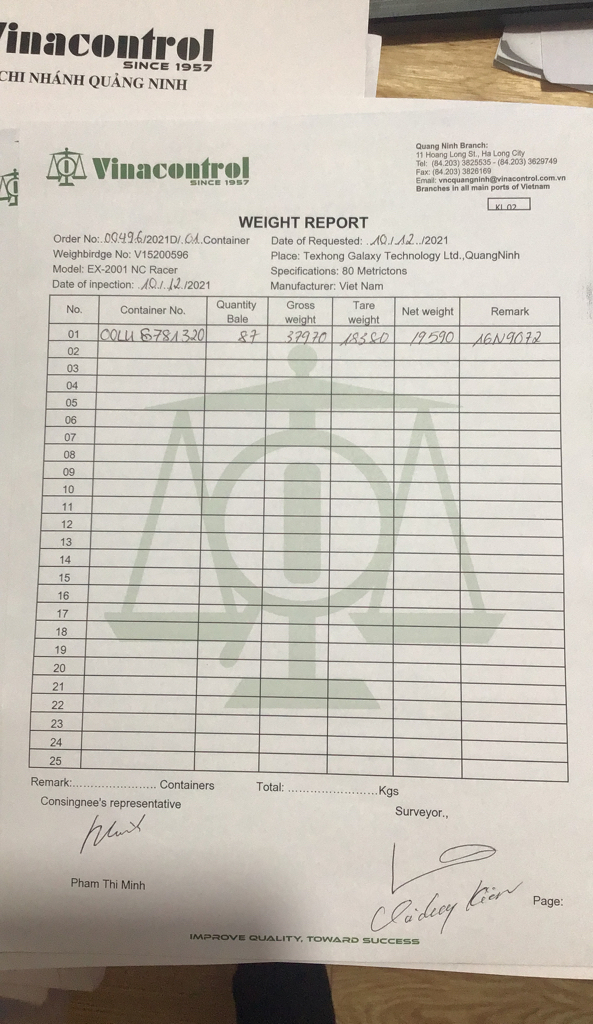 Vinacontrol
SINCE 1957
CHI NHÁNH QUẢNG NINH
Vinacontrol
SINCE 1957
Quang Ninh Branch:
11 Hoang Long St., Ha Long City
Tel: (84.203) 3825535 - (84.203) 3629749
Fax: (84.203) 3826169
Email: vncquangninh@vinacontrol.com.vn
Branches in all main ports of Vietnam
KL 02
WEIGHT REPORT
Order No: 00496/2021D/.01.Container
Date of Requested: .10./.12../2021
Weighbirdge No: V15200596
Place: Texhong Galaxy Technology Ltd.,QuangNinh
Model: EX-2001 NC Racer
Specifications: 80 Metrictons
Date of inpection: .10./.12./2021
Manufacturer: Viet Nam
No. Container No. Quantity Bale Gross weight Tare weight Net weight Remark
01 OOLU 8781320 87 37970 18380 19590 16N9072
02
03
04
05
06
07
08
09
10
11
12
13
14
15
16
17
18
19
20
21
22
23
24
25
Remark:........................ Containers Total: ........................Kgs
Consingnee's representative
Surveyor.,
Pham Thi Minh
Page:
IMPROVE QUALITY, TOWARD SUCCESS